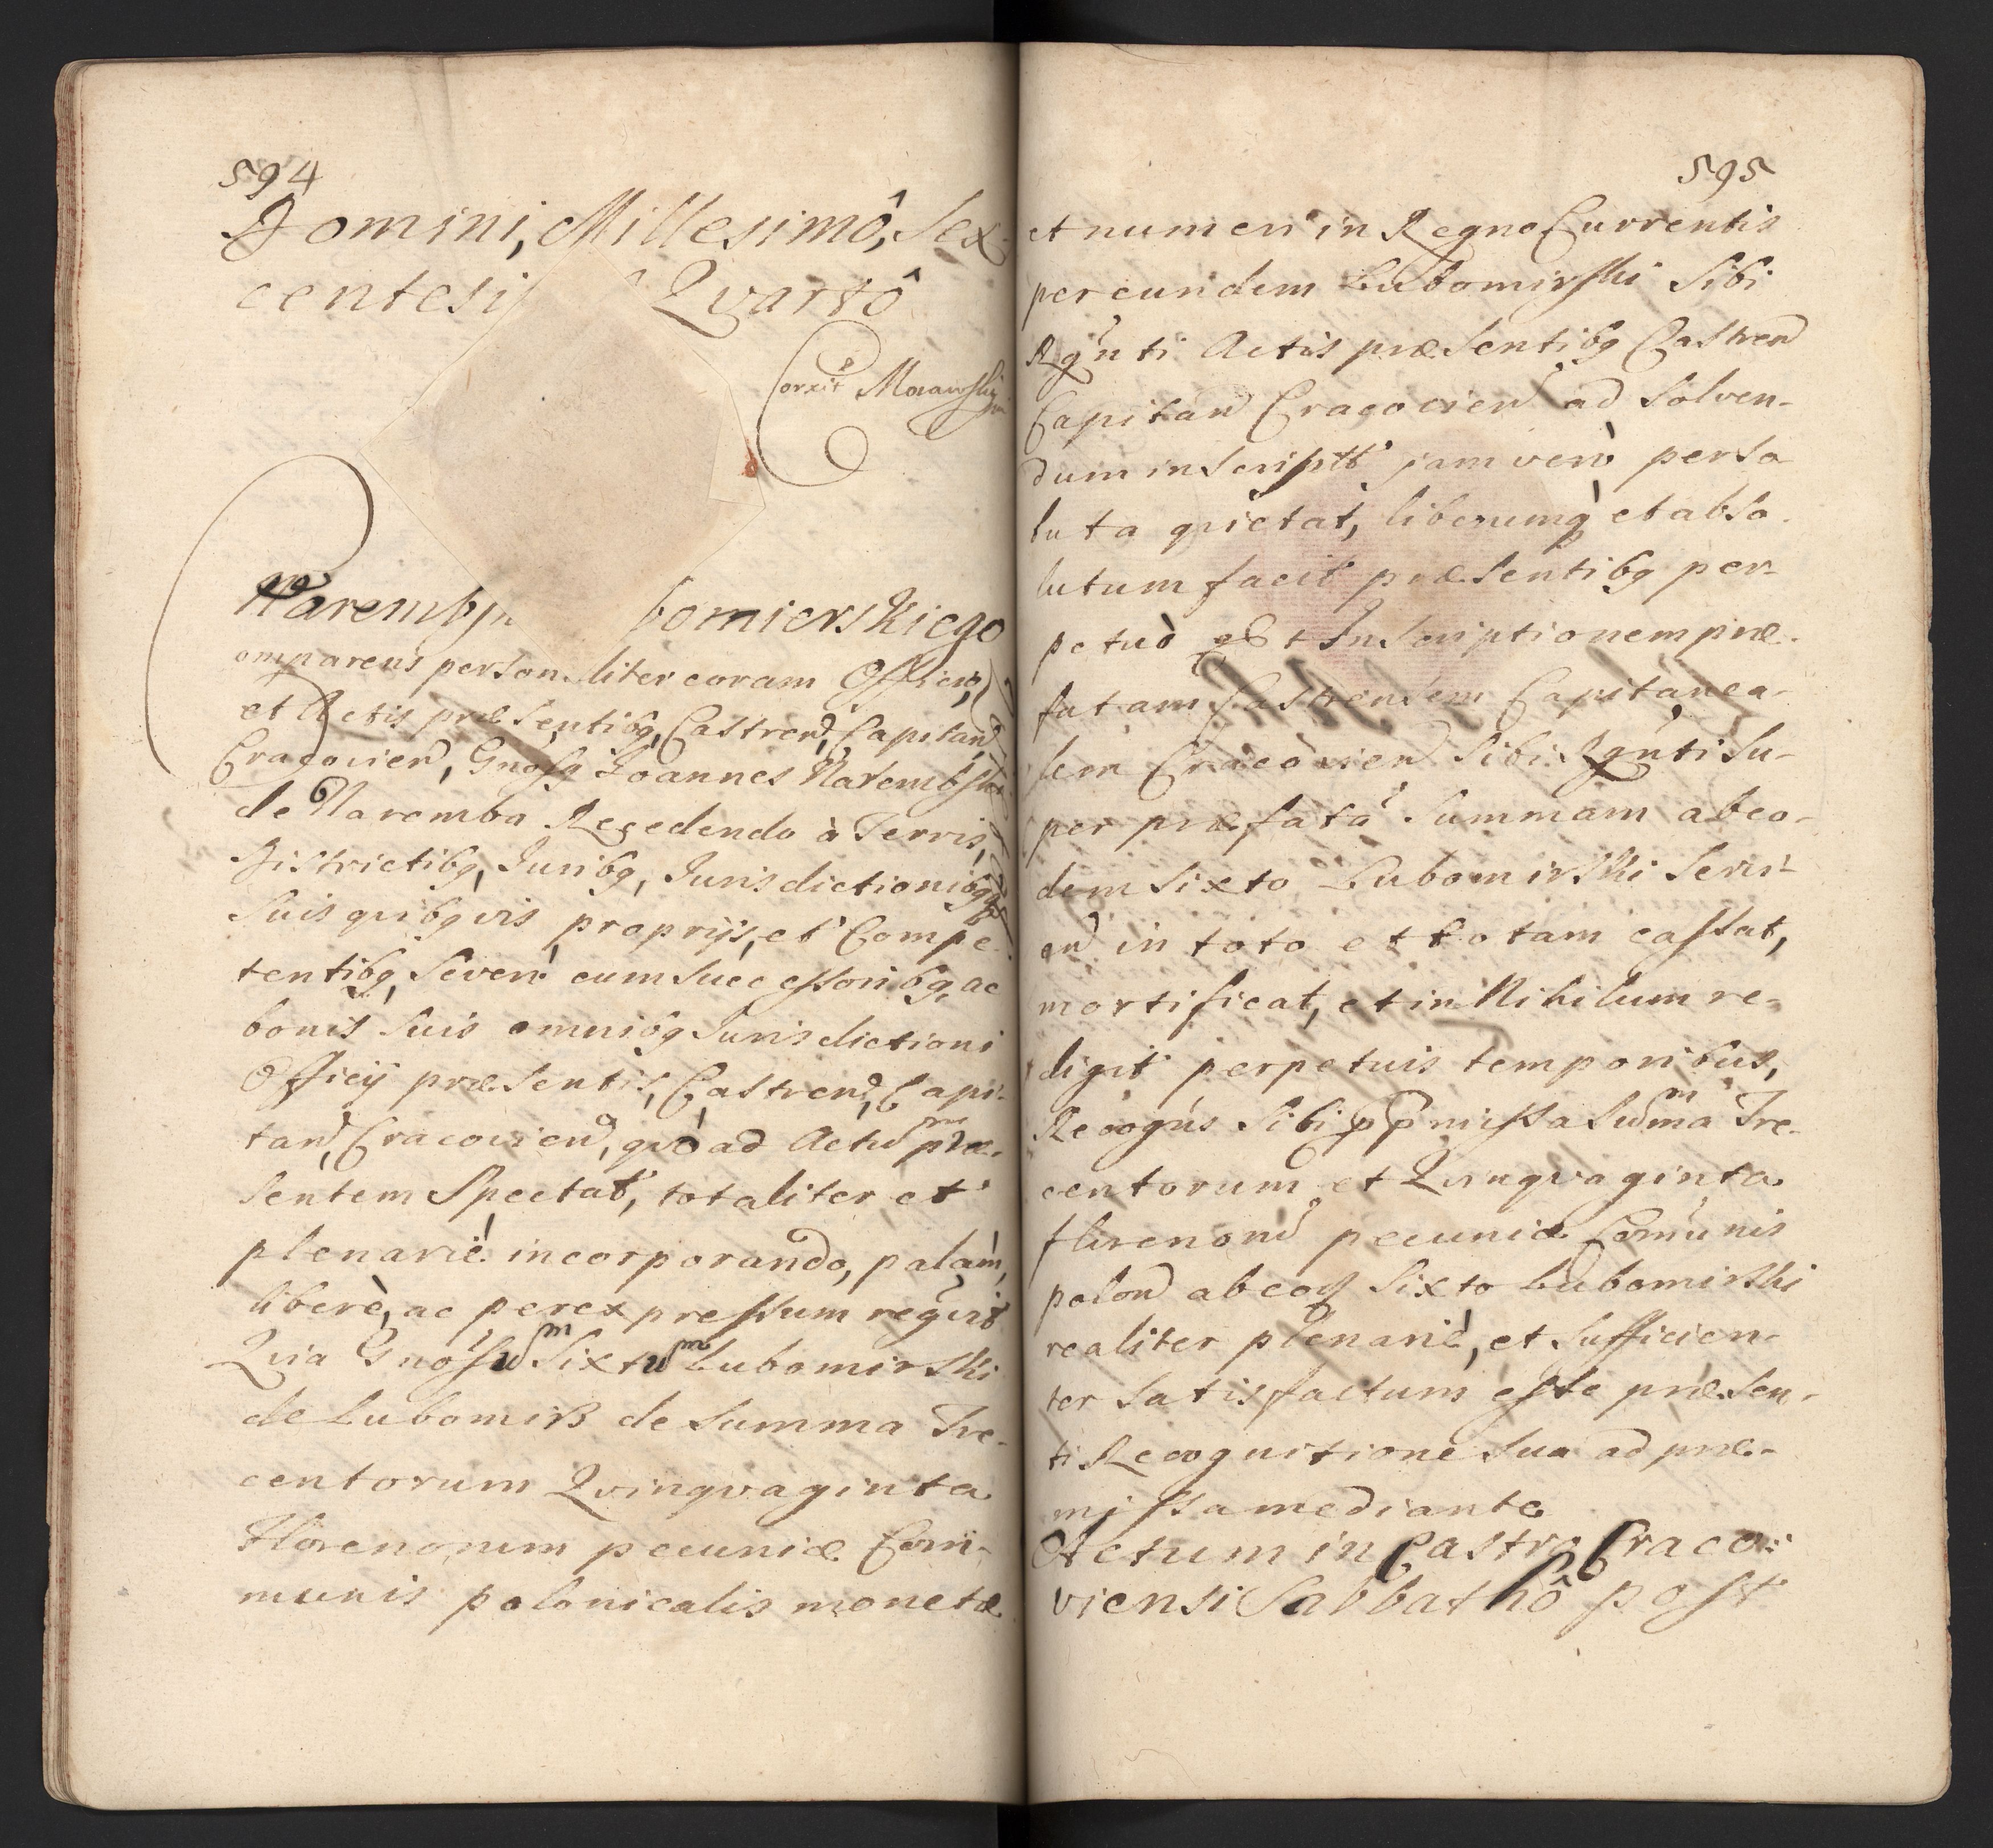 594
Domini, Millesimô, Sex-
centesi Qvartô
Corxit Morawsky
Narembsk bomierskiego
omparens personaliter coram Officio,
et Actis præsentibq, Castren, Capitan,
Cracovien, Gnosq Joannes Narembski
de Naremba Recedendo à Terris,
Districtibq, Juribq, Jurisdictionibqq
Suis qvibqvis proprijs, et Compe-
tentibq, Severò cum Successoribq, ac
bonis Suis omnibq Jurisdictioni
Officij præsentis, Castren, Capi-
tan, Cracovien, qvò ad Actum præ-
sentem Spectat, totaliter et
plenariè incorporando, palàm,
liberè, ac per expressum regvit
Qvia Gnosum Sixtum Lubomirski
de Lubomirz de Summa Tre-
centorum Qvinqvaginta
Florenorum pecuniæ Com-
munis polonicalis monetæ
595
et numeri in Regno Currentis
per eundem Lubomirski Sibi
Rgnti Actis præsentibq Castren
Capitan Cracovien ad Solven-
dum inscript jam verò perso-
luta qvietat, liberumq et abso-
lutum facit præsentibq per-
petuò et Inscriptionem præ-
fatam Castrensem Capitanea-
lem Cracovien Sibi Rgnti Su-
per præfatã Summam ab eo-
dem Sixto Lubomirski Servi-
en in toto et totam cassat,
mortificat, et in Nihilum re-
digit perpetuis temporibus,
Recogns Sibi pp missa Summa Tre-
centorum et Qvinqvaginta
florenorum pecuniæ Comunis
polon ab eod Sixto Lubomirski
realiter plenariè, et Sufficien-
ter Satisfactum esse præsen-
ti Recognitione Sua ad præ-
missa mediante
Actum in Castro Craco:
viensi Sabbathô post